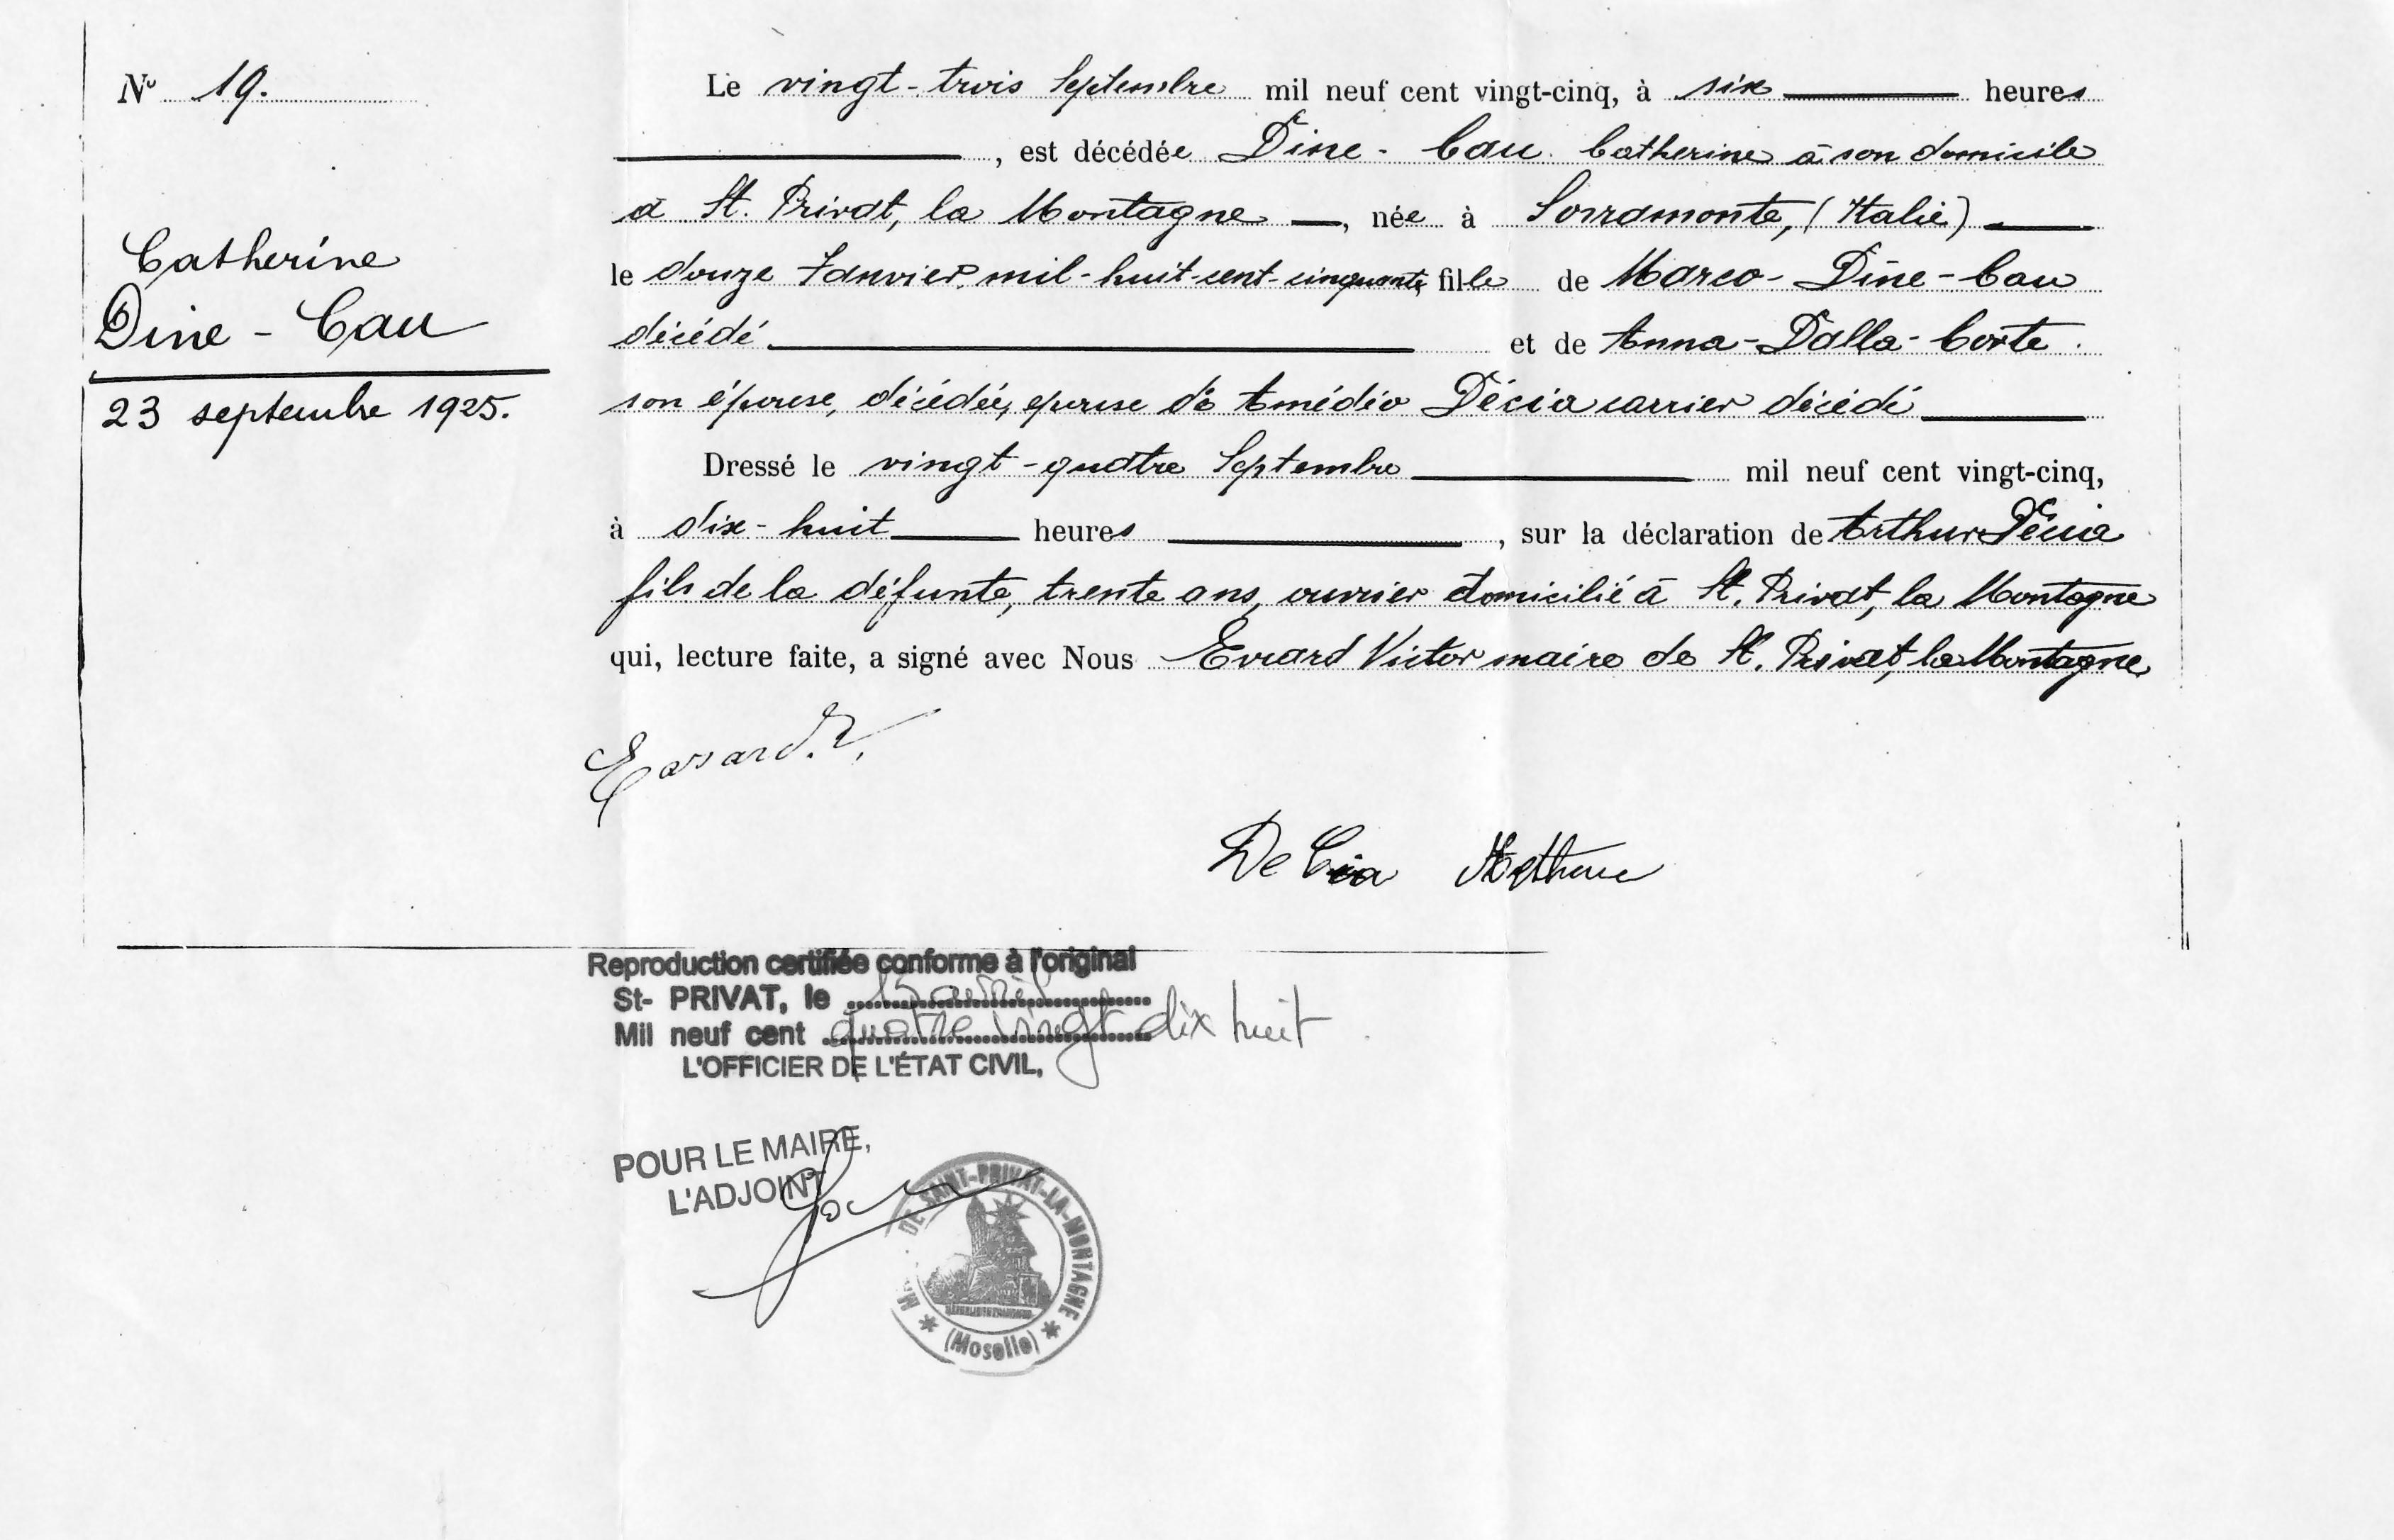 Nº 19.
Catherine
Dine - Cau
23 septembre 1925.
Le vingt-trois Septembre mil neuf cent vingt-cinq, à six heures
, est décédée Dine - Cau Catherine à son domicile
à St. Privat, la Montagne, née à Sorramonte, (Italie)
le douze Janvier mil-huit-cent-cinquante, fille de Marco - Dine - Cau
décédé et de Anna - Dalla - Corte.
son épouse, décédée, epouse de Amédéo Décia carrier décédé
Dressé le vingt-quatre Septembre mil neuf cent vingt-cinq,
à dix-huit heures, sur la déclaration de Arthur Décia
fils de la défunte, trente ans, ouvrier domicilié à St. Privat, la Montagne
qui, lecture faite, a signé avec Nous Evrard Victor maire de St. Privat, la Montagne
Evrard. V.
De Cia
Reproduction certifiée conforme à l'original
St- PRIVAT, le
Mil neuf cent quatre vingt dix huit
L'OFFICIER DE L'ÉTAT CIVIL,
POUR LE MAIRE,
L'ADJOINT
DE SAINT-PRIVAT-LA-MONTAGNE
(Moselle)